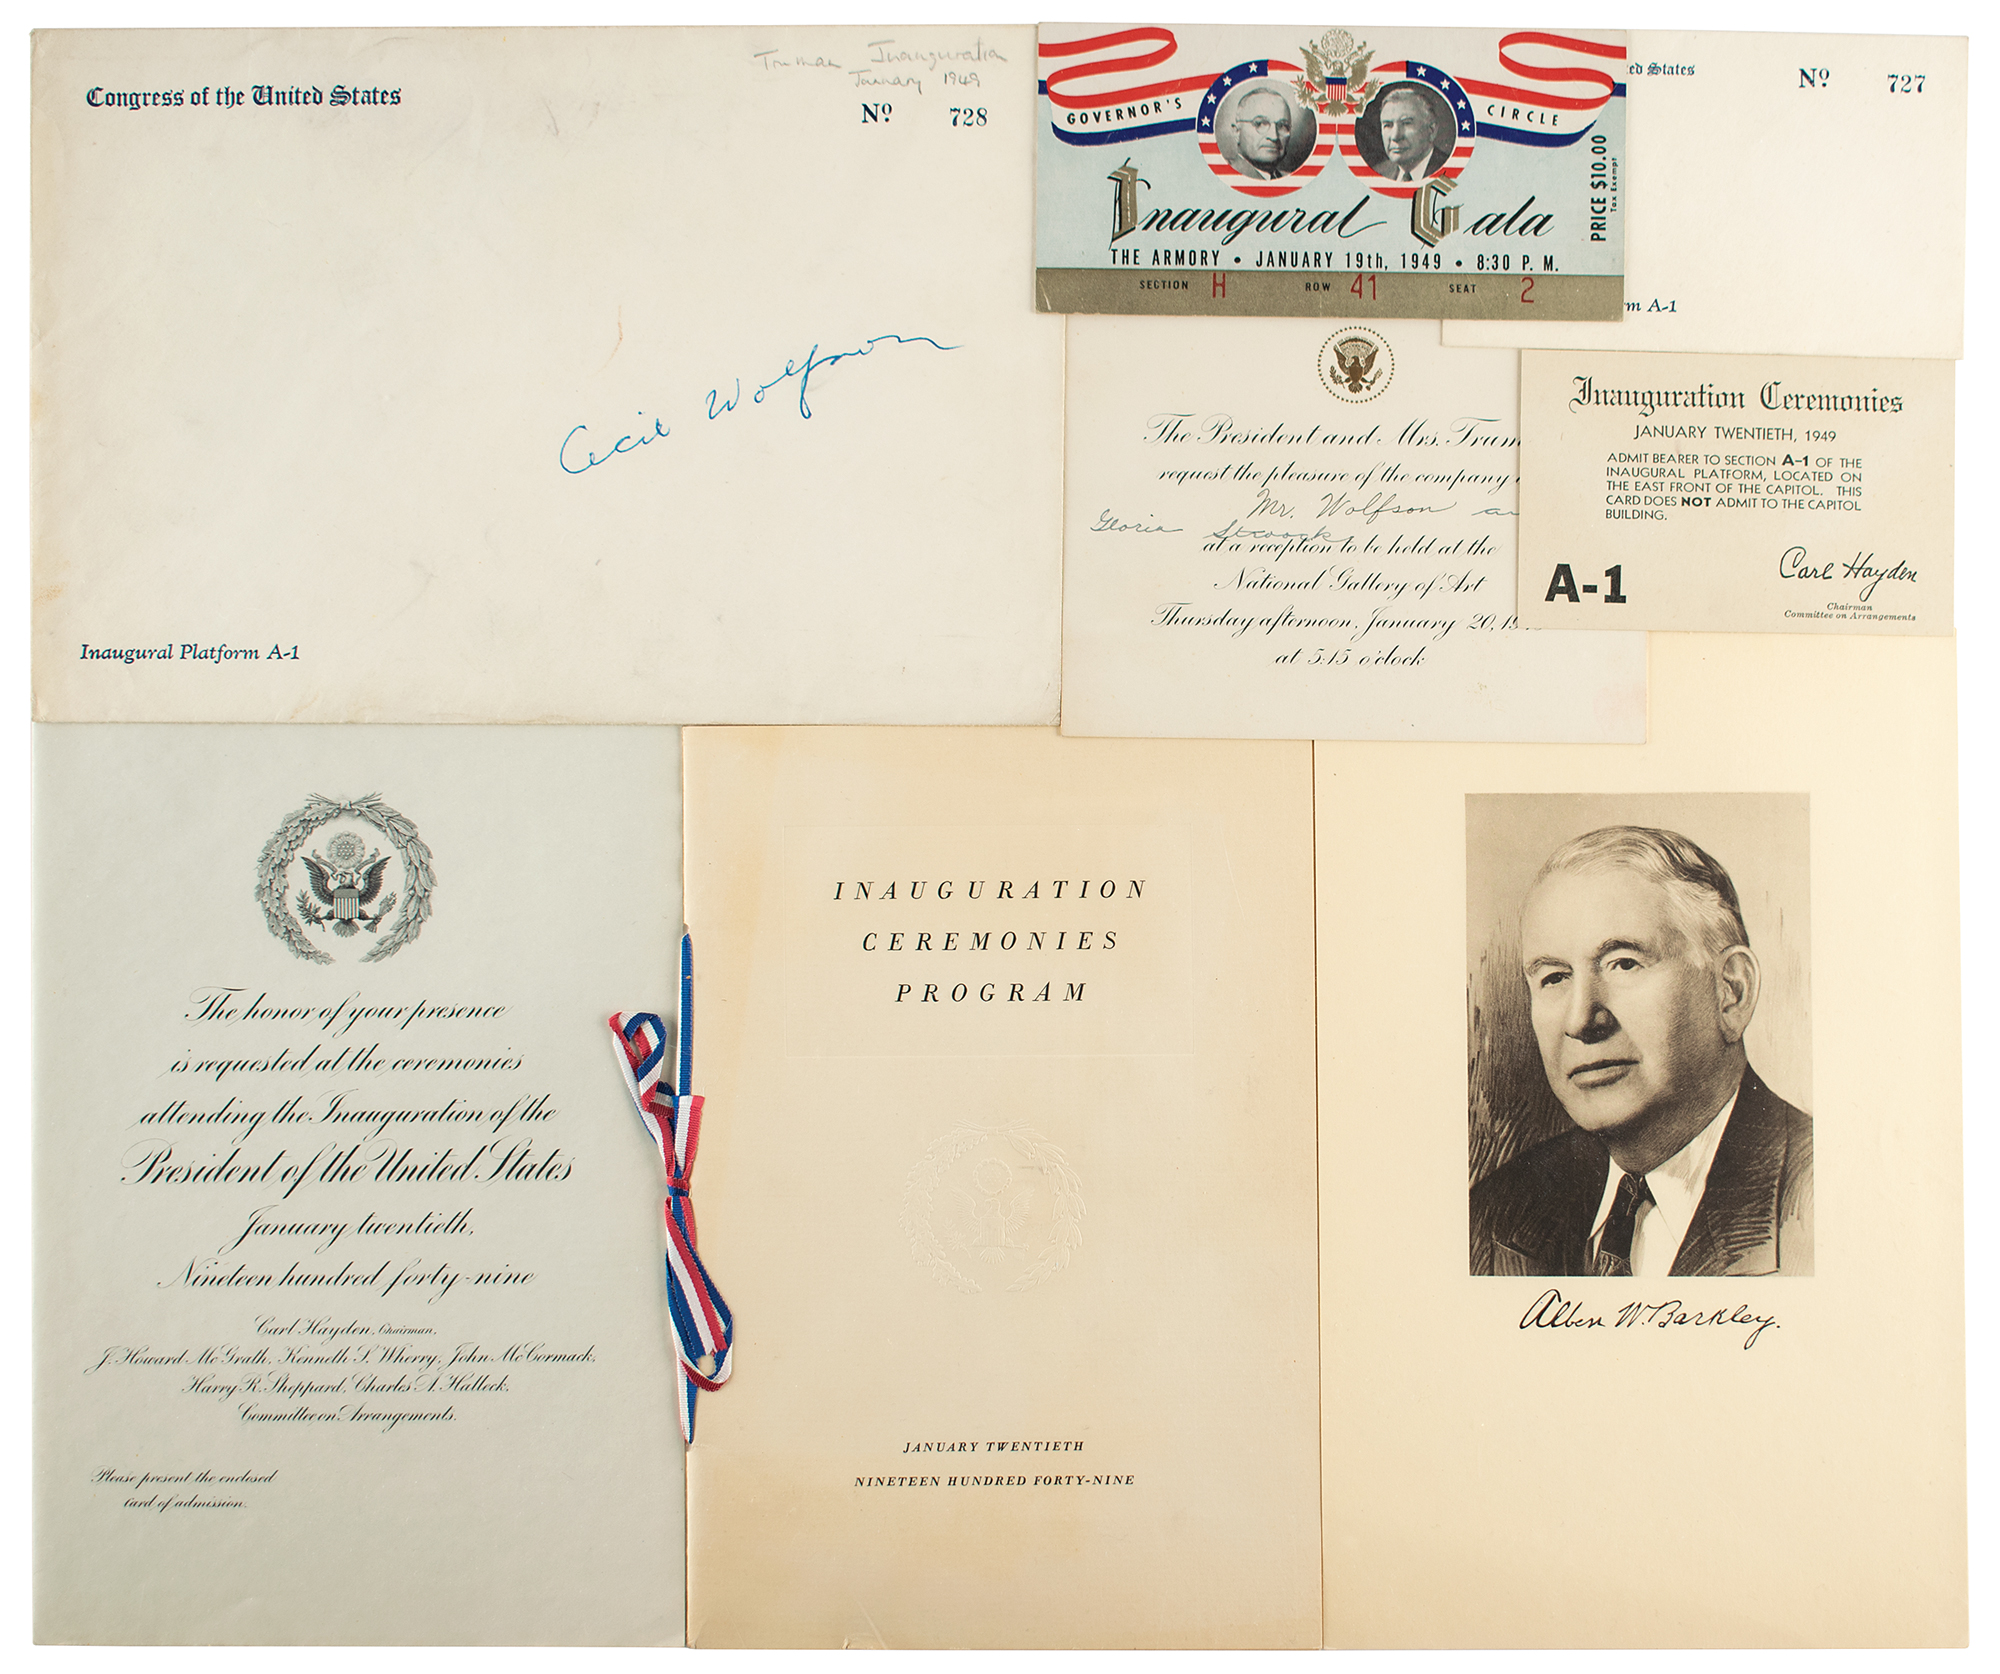 Truman Inauguration
January 1949
Congress of the United States
No 728
Cecil Wolfson
Inaugural Platform A-1
GOVERNOR'S CIRCLE
Inaugural Gala
THE ARMORY • JANUARY 19th, 1949 • 8:30 P. M.
SECTION H ROW 41 SEAT 2
PRICE $10.00
Tax Exempt
ed States
No 727
m A-1
The President and Mrs. Trum
request the pleasure of the company
Mr. Wolfson an
Gloria Stroock
at a reception to be held at the
National Gallery of Art
Thursday afternoon, January 20, 19
at 5:15 o'clock
Inauguration Ceremonies
JANUARY TWENTIETH, 1949
ADMIT BEARER TO SECTION A-1 OF THE
INAUGURAL PLATFORM, LOCATED ON
THE EAST FRONT OF THE CAPITOL. THIS
CARD DOES NOT ADMIT TO THE CAPITOL
BUILDING.
A-1
Carl Hayden
Chairman
Committee on Arrangements
The honor of your presence
is requested at the ceremonies
attending the Inauguration of the
President of the United States
January twentieth,
Nineteen hundred forty-nine
Carl Hayden, Chairman,
J. Howard McGrath, Kenneth S. Wherry, John McCormack,
Harry R. Sheppard, Charles A. Halleck,
Committee on Arrangements.
Please present the enclosed
card of admission.
INAUGURATION
CEREMONIES
PROGRAM
JANUARY TWENTIETH
NINETEEN HUNDRED FORTY-NINE
Alben W. Barkley.